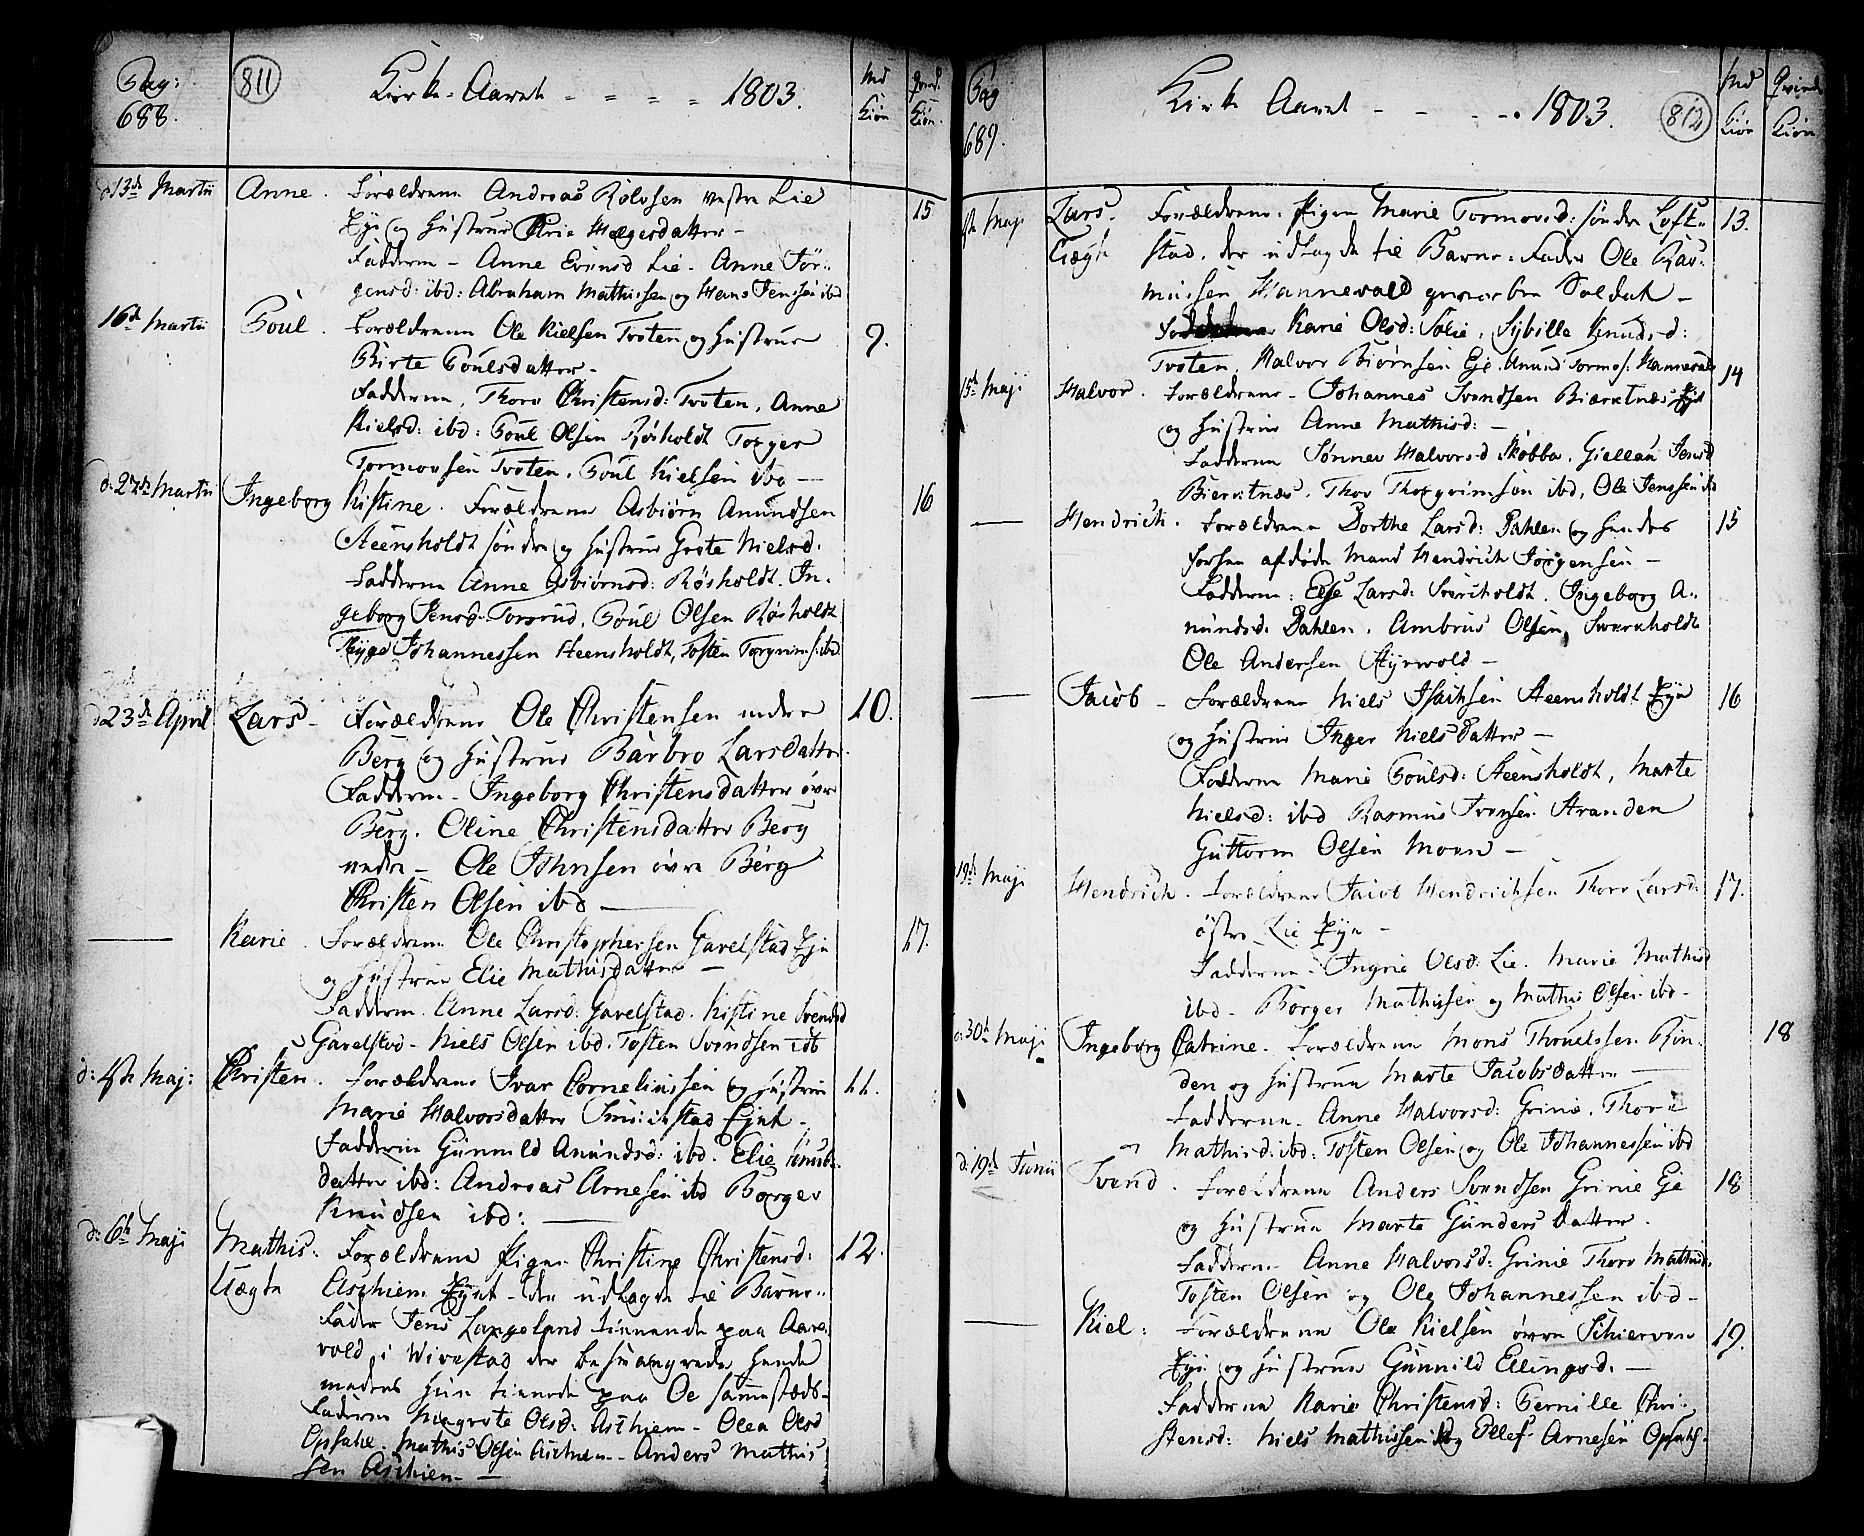 Pag: 688. 811 Kirke-Aaret - - - - 1803. Md Kiøn Qvind Kiøn.
d 13de Martii Anne. Forældrene Andreas Rolvsen vestre Lie 15
Eje og Hustrue
Fadderne - Anne Evensd Lie. Anne Jör-
gensd: ibd: Abraham Mathissen og Hans Jenssen ibd
16de Martii Poul. Forældrene Ole Kielsen Tvoten og Hustrue 9.
Birte Poulsdatter -
Fadderne, Thore Christensd: Tvoten, Anne
Kielsd: ibd: Poul Olsen Røsholdt Torger
Tormovsen Tvoten. Poul Kielsen ibd -
d: 27de Martii Ingeborg Kistine. Forældrene Asbiørn Amundsen 16
Steensholdt søndre og Hustrue Grete Nielsd.
Fadderne Anne Asbiørnsd: Røsholdt. In-
geborg Jensd. Torsrud, Poul Olsen Røsholdt
Johannessen Steensholdt, Tosten Torgrims: ibd
d 23de April Lars - Forældrene Ole Christensen nedre 10.
Berg og Hustrue Barbro Larsdatter.
Fadderne - Ingeborg Christensdatter øvre
Berg. Oline Christensdatter Berg
nedre - Ole Johnsen øvre Berg
Christen Olsen ibd -
— Karie. Forældrene Ole Christophersen Gavelstad Eje 17.
og Hustrue Elie Mathisdatter -
Fadderne. Anne Larsd: Gavelstad. Kistine Svendsd
Gavelstad - Niels Olsen ibd. Tosten Svendsen ib
d: 4de Maj: Christen. Forældrene Ivar Corneliussen og Hustrue 11.
Marie Halvorsdatter Eje
Fadderne Gunnild Amundsd: ibd. Elie Knuds-
datter ibd: Andreas Arnesen ibd Borger
Knudsen ibd: —
d: 6te Maji Mathis: Forældrene Pigen Christine Christensd: 12.
Uægte Aschiem Eje - den udlagde til Barne-
Fader Jens Langeland tienende paa Aare-
vold i Wivestad der besvangrede hende
medens hun tiente paa Oe sammestæds.
Fadderne Margrete Olsd: Aschiem - Olea Olsd
Opsahl. Mathis Olsen Aschiem - Anders Mathis
sen Aschiem -
Pag 689. Kirke Aaret - - - - 1803. 812 Md Kiøn Qvinde Kiøn
4de Maji Lars. Forældrene. Pigen Marie Tormovsd: søndre Loft- 13.
Uægte stad, der udlagde til Barne-Fader Ole Ras-
mussen Hannevold geworben Soldat -
Karie Olsd: Solie, Sybille Knudsd:
Tvoten, Halvor Biørnsen Eje. Knud Tormos: Hannevold
15de Maji Halvor. Forældrene - Johannes Svendsen Bierketnæs Eje 14
og Hustrue Anne Mathisd: -
Fadderne Sønnev Halvorsd Skobba. Giellau Jensd
Bierketnæs, Thov Thorgrimsen ibd, Ole Jenssen ibd
— Hendrich. Forældrene Dorthe Larsd: Dahlen og hendes 15
forhen afdøde Mand Hendrich Jørgensen -
Fadderne: Else Larsd: Sverholdt. Ingeborg A-
mundsd: Dahlen. Ambrus Olsen, Sverholdt
Ole Andersen Styrvold -
— Jacob - Forældrene Niels Isachsen Steensholdt Eje 16
og Hustrue Inger Nielsdatter -
Fadderne Marie Poulsd: Steensholdt, Marte
Nielsd: ibd Rasmus Iversen Stranden
Guttorm Olsen Moen -
19de Maji Hendrich. Forældrene Jacob Hendrichsen Thore Larsd: 17.
østre Lie Eje -
Fadderne. Ingrie Olsd: Lie. Marie Mathisd
ibd - Borger Mathissen og Mathis Olsen ibd -
d: 30te Maji Ingeborg Catrine. Forældrene Mons Rön- 18
den og Hustrue Marte Jacobsdatter -
Fadderne. Anne Halvorsd: Grinie. Thore
Mathisd: ibd: Tosten Olsen og Ole Johannessen ibd
d: 19de Junii Svend. Forældrene Anders Svendsen Grinie Eje 18
og Hustrue Marte Gundersdatter.
Fadderne Anne Halvorsd: Grinie Thore Mathisd.
Tosten Olsen og Ole Johannessen ibd -
— Kiel: Forældrene Ole Kielsen øvre Schierven 19.
Eje og Hustrue Gunnild Ellingsd. -
Fadderne Karie Christensd: Pernille Chri-
stensd: Niels Mathissen og Ellef Arnesen Opsahl.